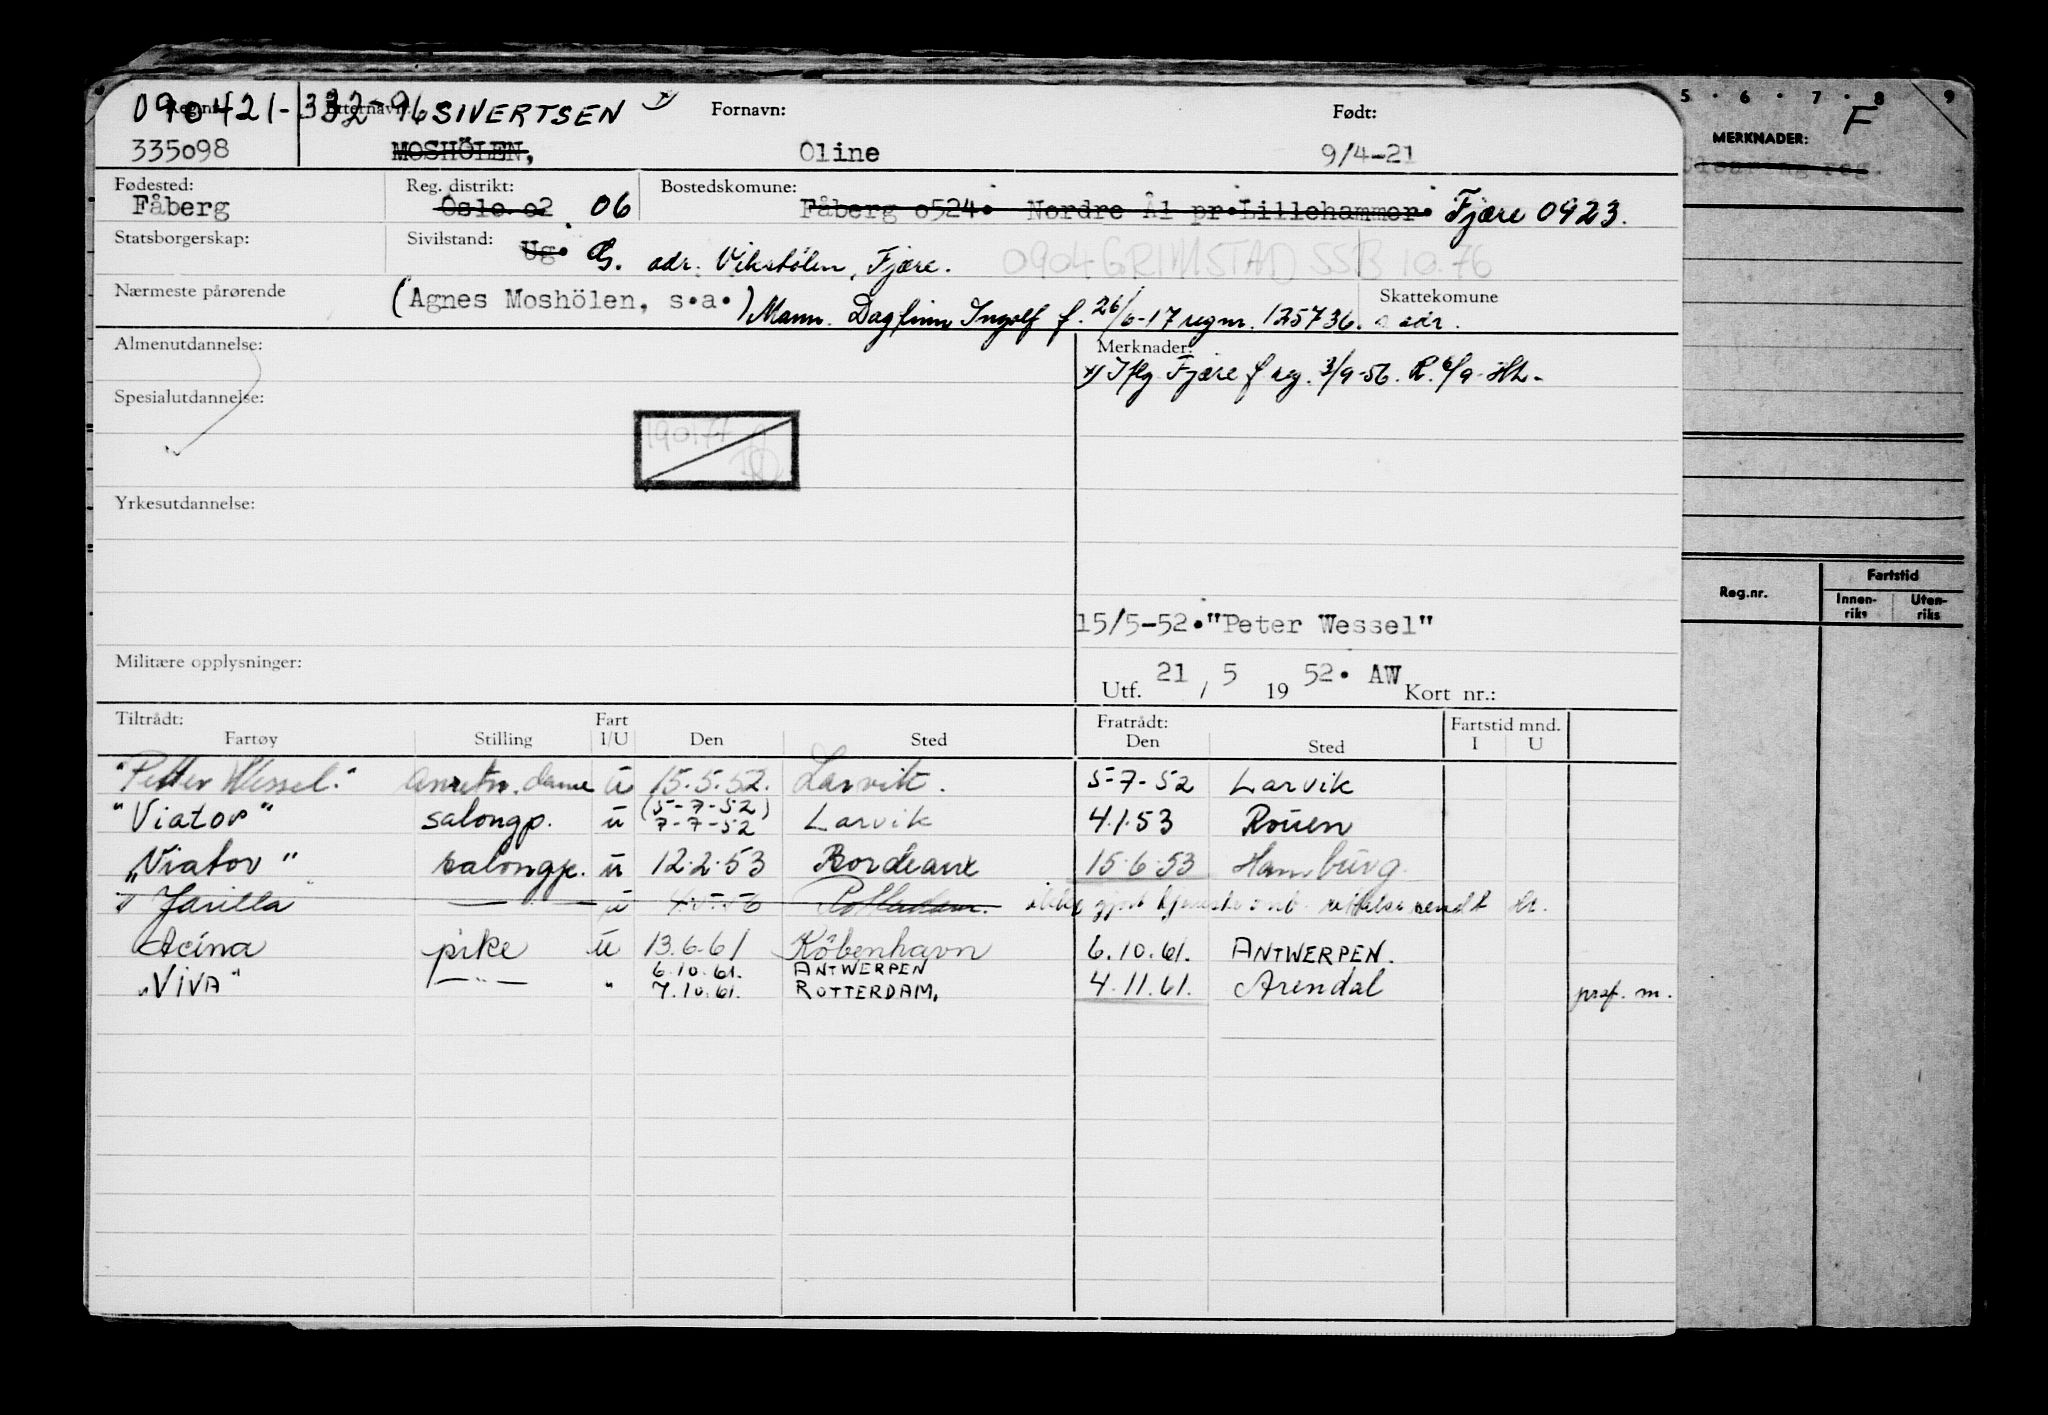 090421-33296 SIVERTSEN x)
Reg.nr. Etternavn: Fornavn: Født:
335098 MOSHÖLEN, Oline 9/4-21
Fødested: Reg. distrikt: Bostedskomune:
Fåberg Oslo. o2 06 Fåberg o524. Nordre Ål pr.Lillehammer. Fjære 0923.
Statsborgerskap: Sivilstand:
Ug. G. adr. Vikstølen, Fjære. 0904 GRIMSTAD SSB 10.76
Nærmeste pårørende (Agnes Moshölen, s.a.) Skattekomune
Mann. Dagfinn Ingolf f. 26/6-17 regnr. 125736. s adr.
Almenutdannelse: Merknader:
x) Iflg Fjære f reg. 3/9-56. R. 6/9
Spesialutdannelse:
190177
Yrkesutdannelse:
15/5-52."Peter Wessel"
Militære opplysninger:
Utf. 21 / 5 19 52. AW Kort nr.:
Tiltrådt: Fart Fratrådt: Fartstid mnd.
Fartøy Stilling I/U Den Sted Den Sted I U
"Petter Wessel." anretn. dame u 15.5.52. Larvik. 5-7-52 Larvik
(5-7-52)
"Viator" salongp. u 7-7-52 Larvik 4.1.53 Rouen
"Viator" salongp. u 12.2.53 Bordeaux 15.6.53 Hamburg.
" Jarilla — " — u Rotterdam. ikke gjort tjeneste omb. rettelse sendt
Acina pike u 13.6.61 København 6.10.61. ANTWERPEN.
6.10.61. ANTWERPEN
"VIVA" — " — " 7.10.61. ROTTERDAM. 4.11.61. Arendal praf. m.
5 · 6 · 7 · 8 9
MERKNADER: F
Reg.nr. Fartstid
Innen-riks Uten-riks